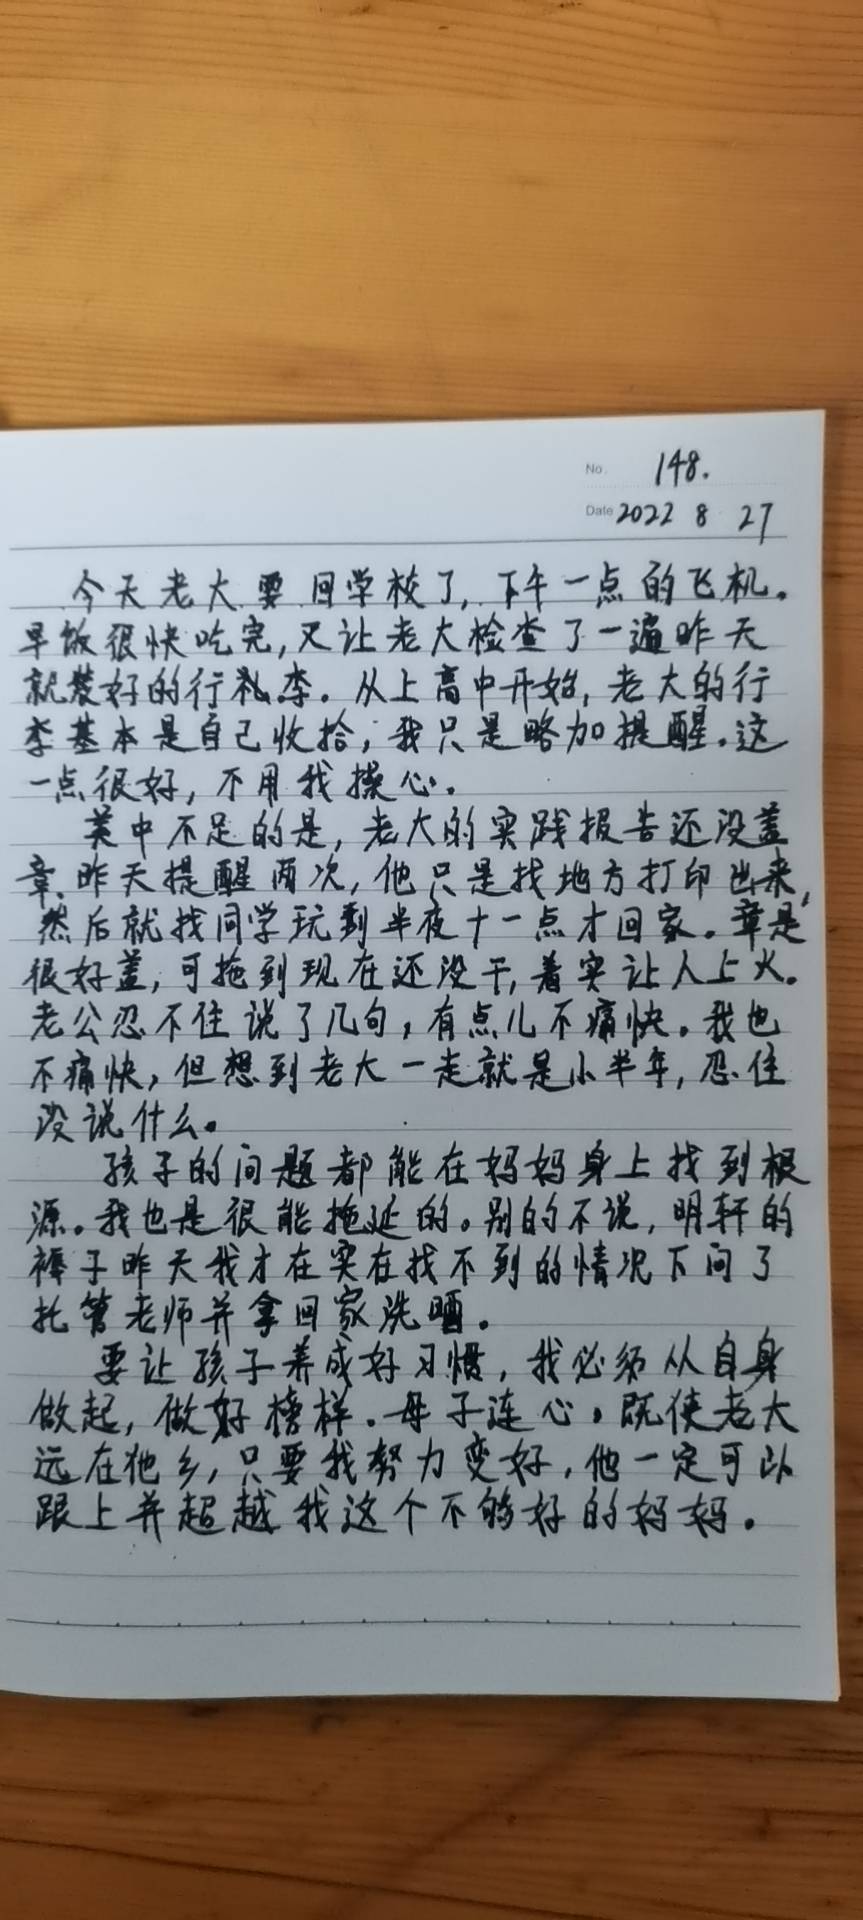 No. 148.
Date 2022 8 27
今天老大要回学校了，下午一点的飞机。
早饭很快吃完，又让老大检查了一遍昨天
就装好的行李。从上高中开始，老大的行
李基本是自己收拾，我只是略加提醒。这
一点很好，不用我操心。
美中不足的是，老大的实践报告还没盖
章，昨天提醒两次，他只是找地方打印出来，
然后就找同学玩到半夜十一点才回家。章是
很好盖，可拖到现在还没干，着实让人上火。
老公忍不住说了几句，有点儿不痛快。我也
不痛快，但想到老大一走就是小半年，忍住
没说什么。
孩子的问题都能在妈妈身上找到根
源。我也是很能拖延的。别的不说，明轩的
褥子昨天我才在实在找不到的情况下问了
托管老师并拿回家洗晒。
要让孩子养成好习惯，我必须从自身
做起，做好榜样。母子连心。既使老大
远在他乡，只要我努力变好，他一定可以
跟上并超越我这个不够好的妈妈。